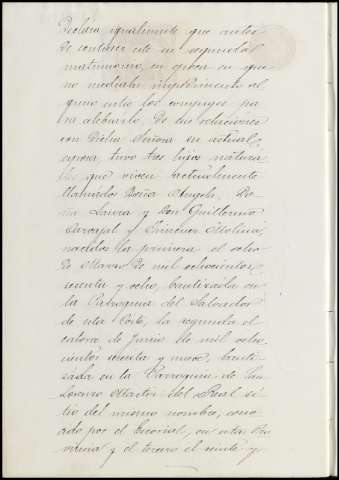 Declara igualmente que antes
de contraer este su segundo
matrimonio, en época en que
no mediaba impedimento al
guno entre los conyuges pa
ra celebrarlo, de sus relaciones
con dicha Señora su actual
esposa, tuvo tres hijos natura
les que viven actualmente
llamados Doña Angela, Do
ña Laura y Don Guillermo
Carvajal y Jimenez Molina,
nacidos la primera el ocho
de Marzo de mil ochocientos
sesenta y ocho, bautizada en
la Parroquia del Salvador
de esta Corte, la segunda el
catorce de Junio de mil ocho
cientos sesenta y nueve, bauti
zada en la Parroquia de San
Lorenzo Martir del Real si
tio del mismo nombre, cono
cido por el Escorial, en esta Pro
vincia y el tercero el veinte y